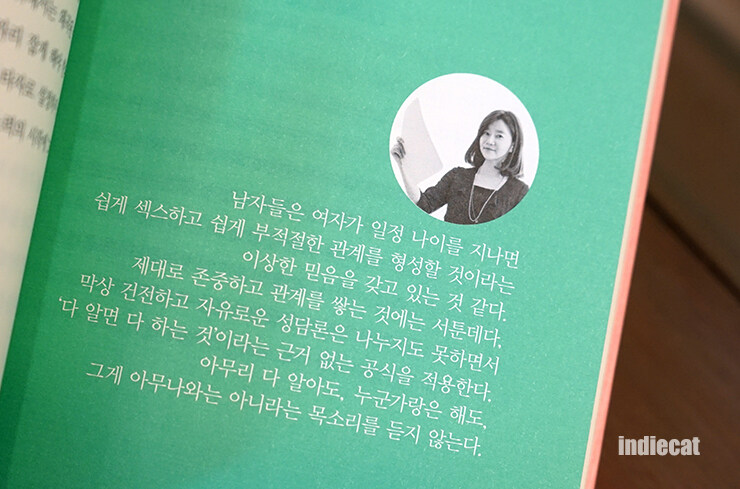 남자들은 여자가 일정 나이를 지나면
쉽게 섹스하고 쉽게 부적절한 관계를 형성할 것이라는
이상한 믿음을 갖고 있는 것 같다.
제대로 존중하고 관계를 쌓는 것에는 서툰데다.
막상 건전하고 자유로운 성담론은 나누지도 못하면서
‘다 알면 다 하는 것’이라는 근거 없는 공식을 적용한다.
아무리 다 알아도, 누군가랑은 해도,
그게 아무나와는 아니라는 목소리를 듣지 않는다.
indiecat